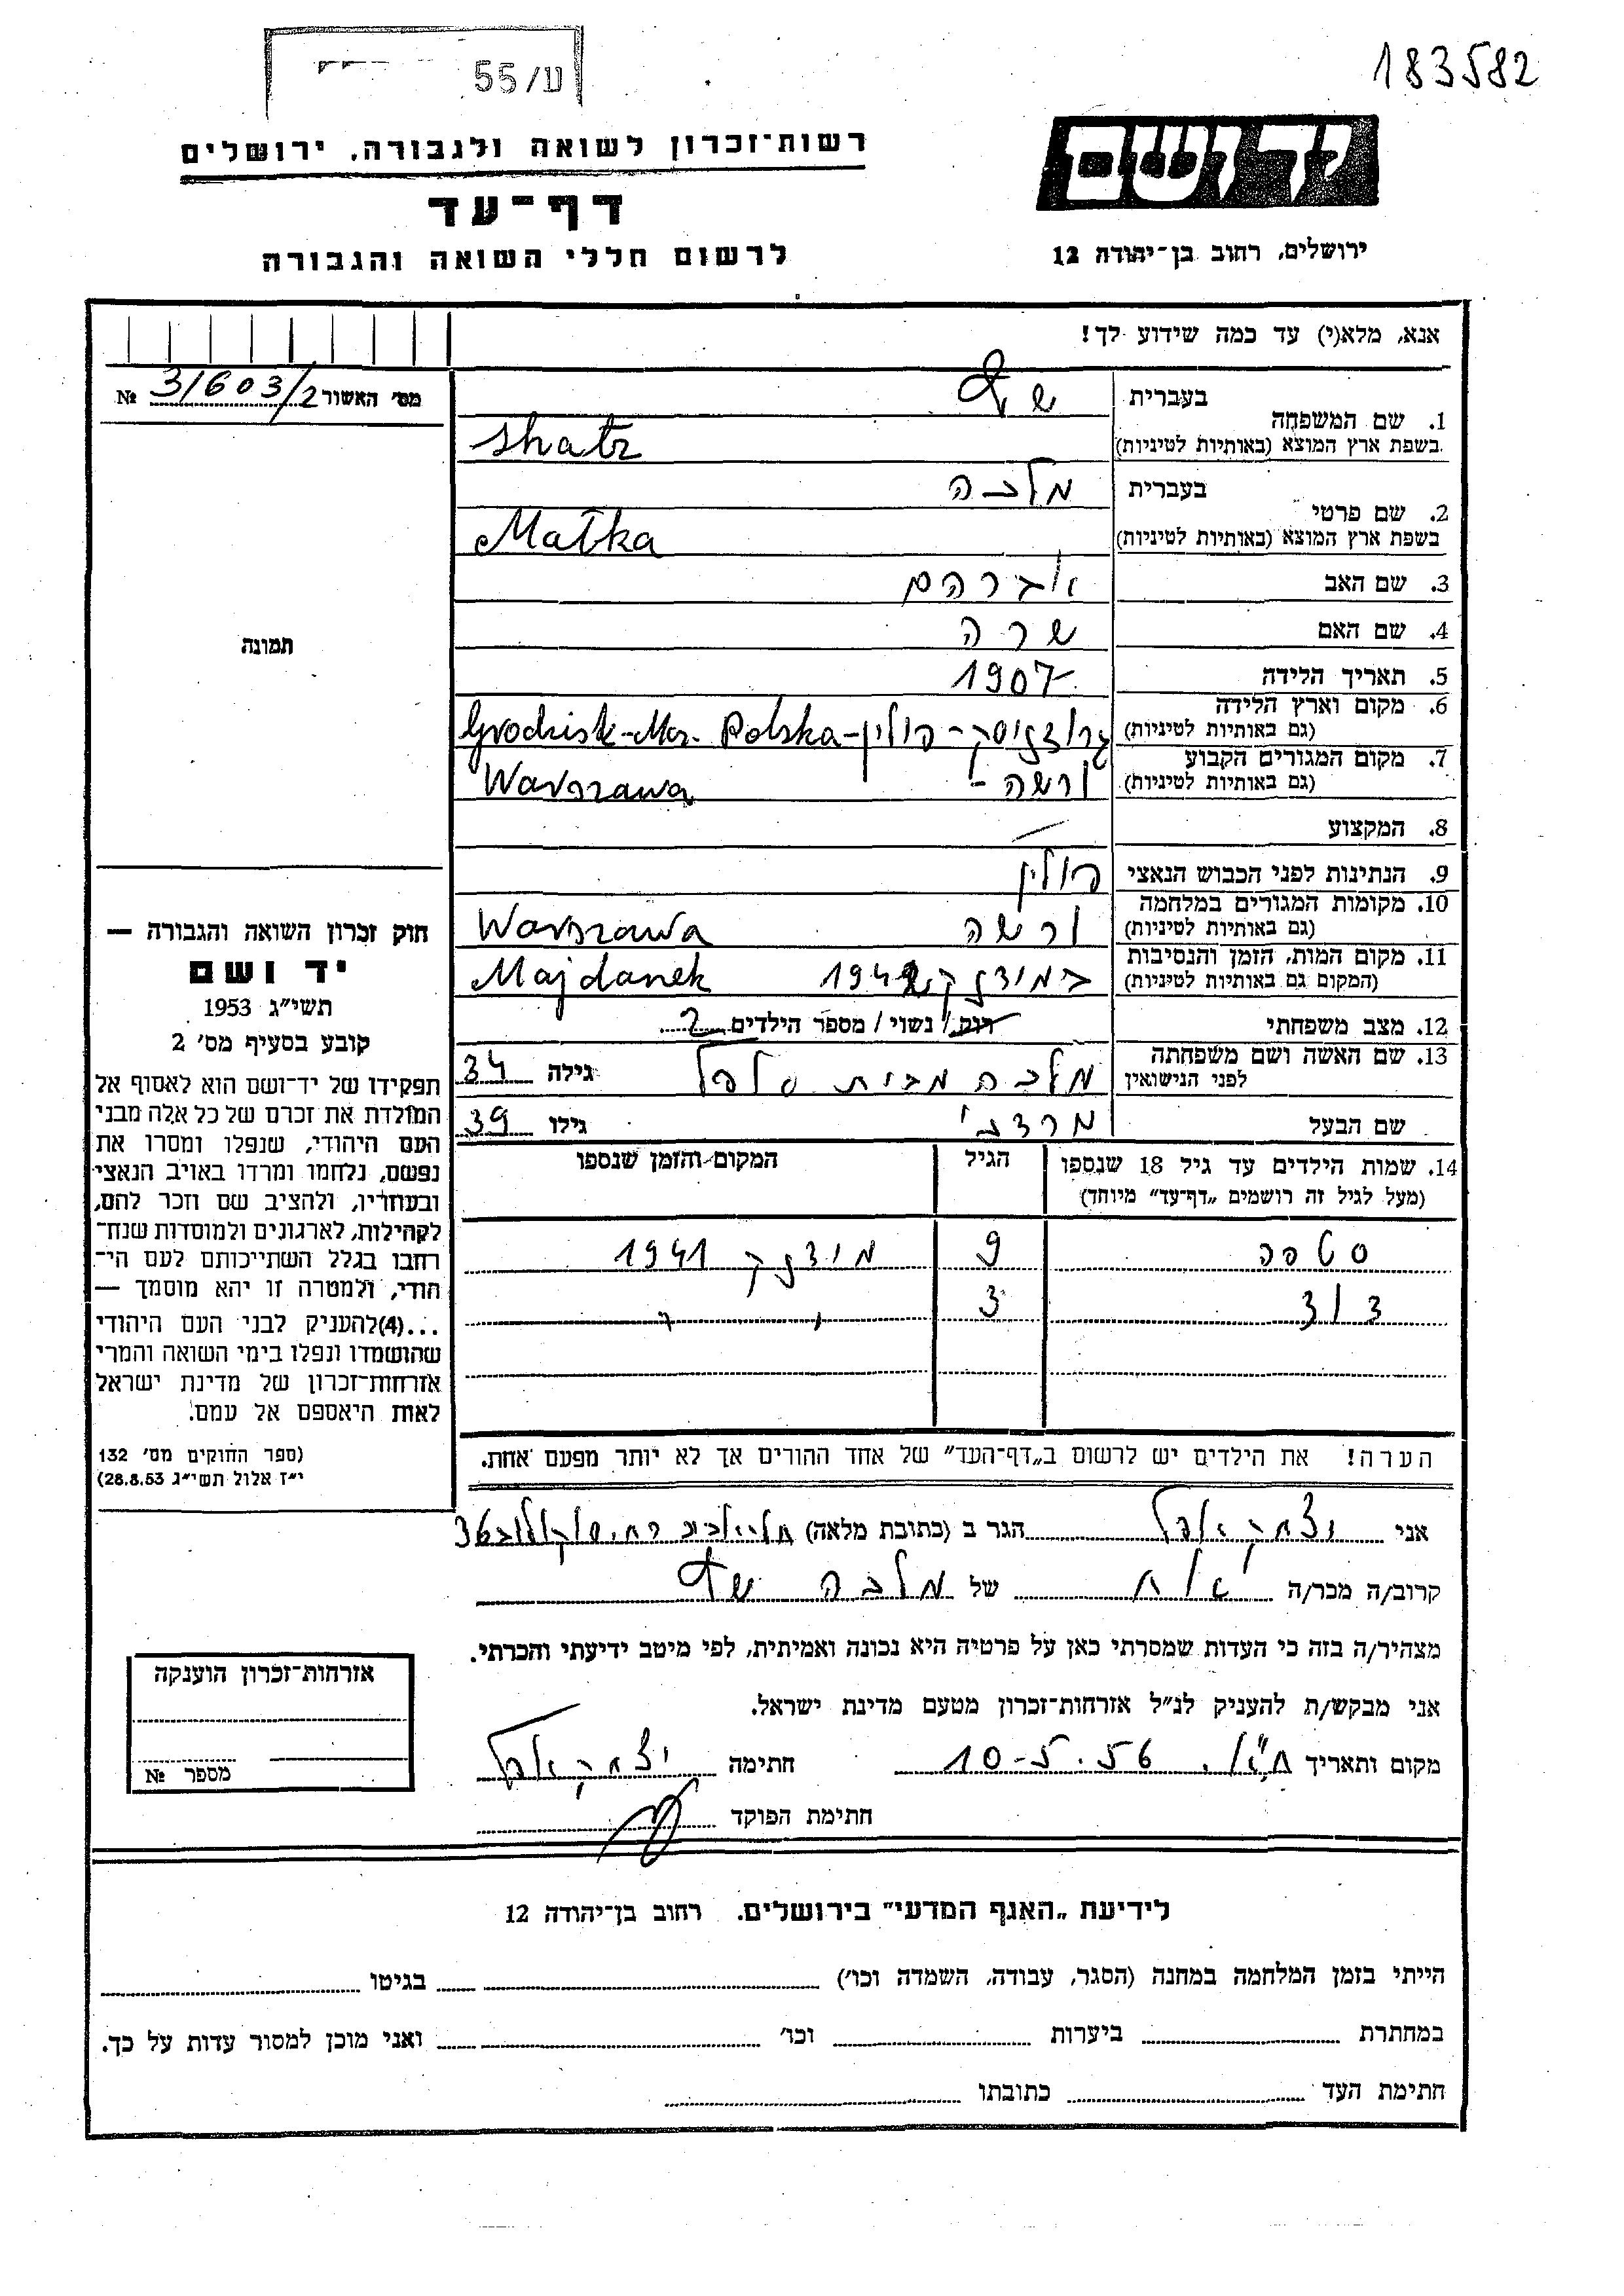 183582
ע/55
רשות־זכרון לשואה ולגבורה, ירושלים
דף־עד
לרשום חללי השואה והגבורה
יד ושם
ירושלים, רחוב בן־יהודה 12
אנא, מלא(י) עד כמה שידוע לך!
מס' האשור 31603/2 №
1. שם המשפחה
בעברית
שץ
בשפת ארץ המוצא (באותיות לטיניות) Shatz
2. שם פרטי
בעברית מלכה
בשפת ארץ המוצא (באותיות לטיניות) Małka
3. שם האב אברהם
4. שם האם שרה
5. תאריך הלידה 1907
6. מקום וארץ הלידה
(גם באותיות לטיניות) גרודזיסק-פולין- Grodzisk-Maz. Polska
7. מקום המגורים הקבוע
(גם באותיות לטיניות) ורשה - Warszawa
8. המקצוע —
9. הנתינות לפני הכבוש הנאצי פולין
10. מקומות המגורים במלחמה
(גם באותיות לטיניות) ורשה Warszawa
11. מקום המות, הזמן והנסיבות
(המקום גם באותיות לטיניות) במידנק Majdanek
12. מצב משפחתי רוק/ נשוי/ מספר הילדים 2
13. שם האשה ושם משפחתה
לפני הנישואין מלכה מבית גילה 34
שם הבעל מרדכי גילו 39
14. שמות הילדים עד גיל 18 שנספו
(מעל לגיל זה רושמים „דף־עד" מיוחד)
הגיל
המקום והזמן שנספו
סטפה 9 מידנק 1941
3 " "
הערה! את הילדים יש לרשום ב„דף־העד" של אחד ההורים אך לא יותר מפעם אחת.
תמונה
חוק זכרון השואה והגבורה —
יד ושם
תשי"ג 1953
קובע בסעיף מס' 2
תפקידו של יד־ושם הוא לאסוף אל
המולדת את זכרם של כל אלה מבני
העם היהודי, שנפלו ומסרו את
נפשם, נלחמו ומרדו באויב הנאצי
ובעוזריו, ולהציב שם וזכר להם,
לקהילות, לארגונים ולמוסדות שנח־
רחבו בגלל השתייכותם לעם הי־
הודי, ולמטרה זו יהא מוסמך —
...(4)להעניק לבני העם היהודי
שהושמדו ונפלו בימי השואה והמרי
אזרחות־זכרון של מדינת ישראל
לאות היאספם אל עמם.
(ספר החוקים מס' 132
י"ז אלול תשי"ג 28.8.53)
אני יצחק הגר ב (כתובת מלאה) תל-אביב
קרוב/ה מכר/ה אח של מלכה שץ
מצהיר/ה בזה כי העדות שמסרתי כאן על פרטיה היא נכונה ואמיתית, לפי מיטב ידיעתי והכרתי.
אני מבקש/ת להעניק לנ"ל אזרחות־זכרון מטעם מדינת ישראל.
מקום ותאריך ת"א. 10-5.56 חתימה יצחק
חתימת הפוקד
אזרחות־זכרון הוענקה
מספר №
לידיעת „האגף המדעי" בירושלים. רחוב בן־יהודה 12
הייתי בזמן המלחמה במחנה (הסגר, עבודה, השמדה וכו') בגיטו
במחתרת ביערות וכו' ואני מוכן למסור עדות על כך.
חתימת העד כתובתו